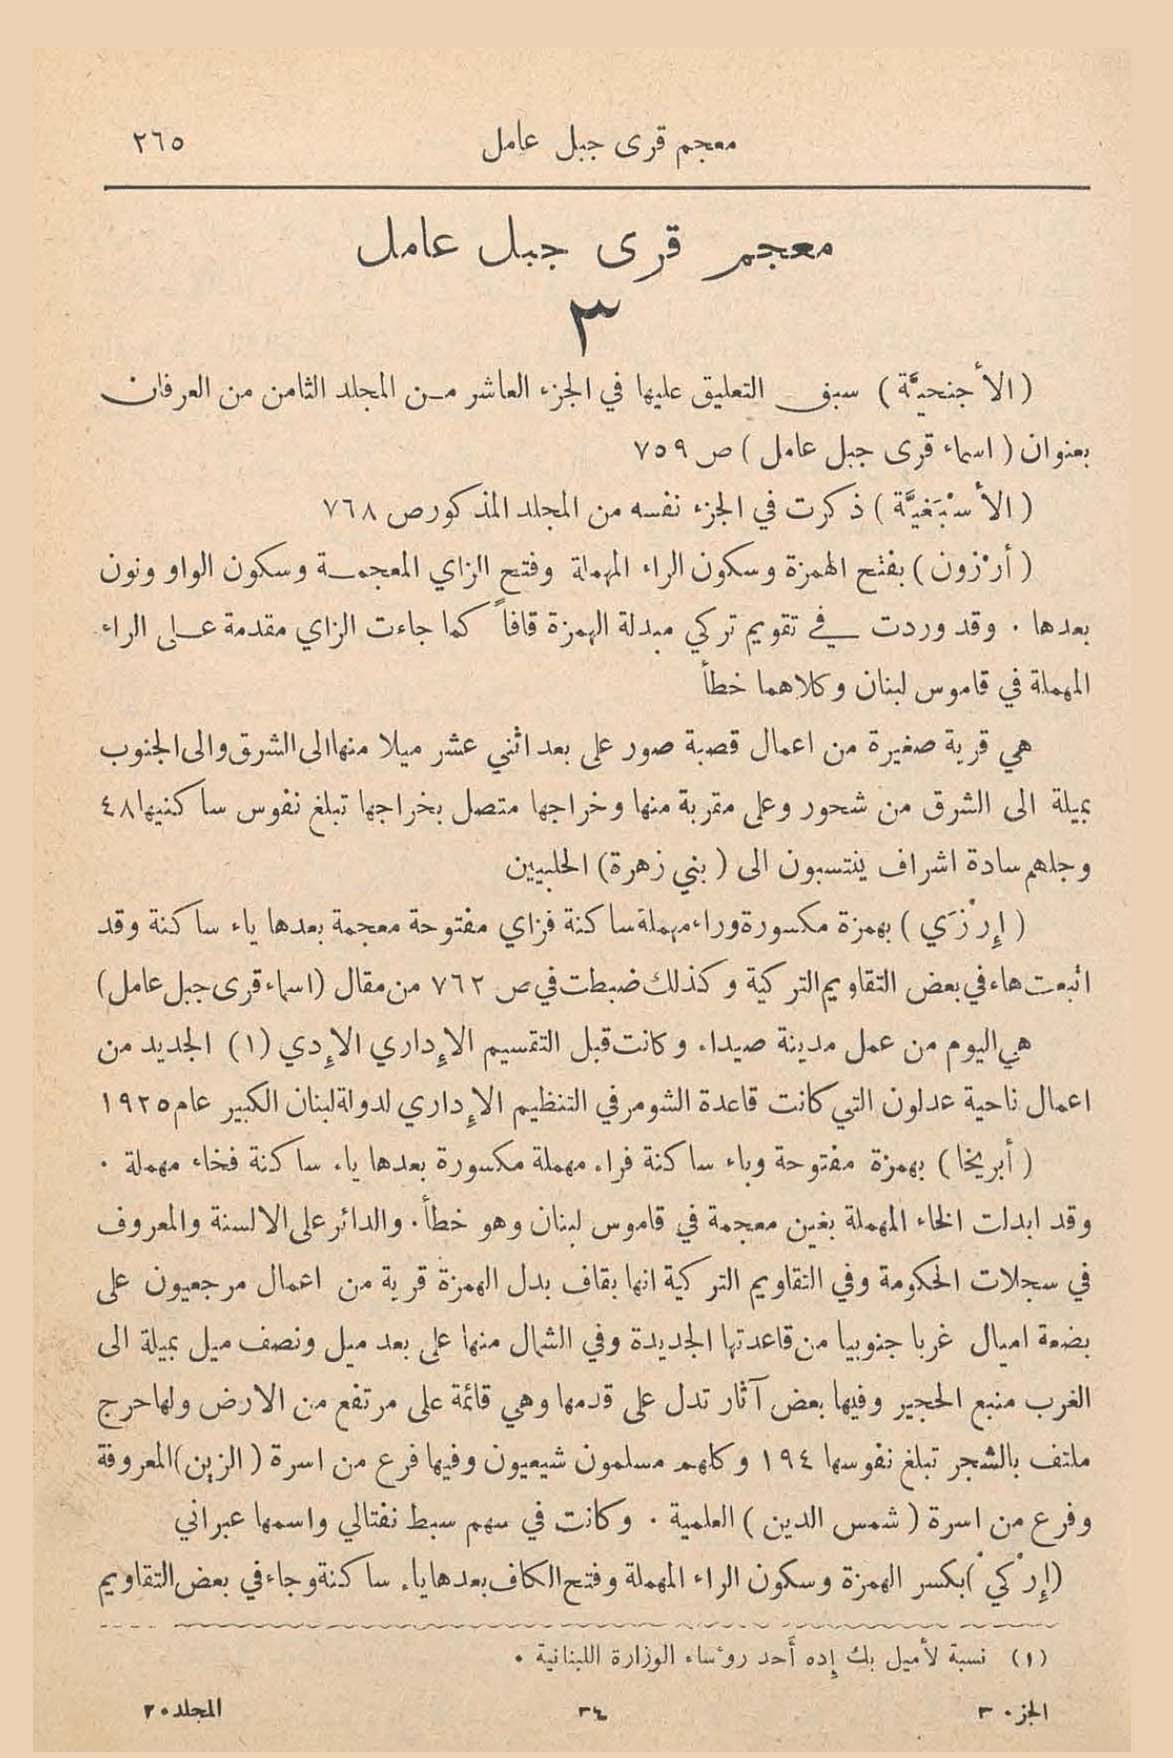 معجم قرى جبل عامل ٢٦٥
معجم قرى جبل عامل
٣
( الأجنحيَّة ) سبق التعليق عليها في الجزء العاشر من المجلد الثامن من العرفان
بعنوان ( اسماء قرى جبل عامل ) ص ٧٥٩
( الأسْبَغيَّة ) ذكرت في الجزء نفسه من المجلد المذكور ص ٧٦٨
( أرْزون ) بفتح الهمزة وسكون الراء المهملة وفتح الزاي المعجمة وسكون الواو ونون
بعدها . وقد وردت في تقويم تركي مبدلة الهمزة قافاً كما جاءت الزاي مقدمة على الراء
المهملة في قاموس لبنان وكلاهما خطأ
هي قرية صغيرة من اعمال قصبة صور على بعد اثني عشر ميلا منها الى الشرق والى الجنوب
بميلة الى الشرق من شحور وعلى مقربة منها وخراجها متصل بخراجها تبلغ نفوس ساكنيها ٤٨
وجلهم سادة اشراف ينتسبون الى ( بني زهرة ) الحلبيين
( إِرْزَي ) بهمزة مكسورة وراء مهملة ساكنة فزاي مفتوحة معجمة بعدها ياء ساكنة وقد
اتبعت هاء في بعض التقاويم التركية وكذلك ضبطت في ص ٧٦٢ من مقال ( اسماء قرى جبل عامل )
هي اليوم من عمل مدينة صيداء وكانت قبل التقسيم الإداري الإدي (١) الجديد من
اعمال ناحية عدلون التي كانت قاعدة الشومر في التنظيم الإداري لدولة لبنان الكبير عام ١٩٢٥
( أبريخا ) بهمزة مفتوحة وباء ساكنة فراء مهملة مكسورة بعدها ياء ساكنة فخاء مهملة .
وقد ابدلت الخاء المهملة بغين معجمة في قاموس لبنان وهو خطأ . والدائر على الالسنة والمعروف
في سجلات الحكومة وفي التقاويم التركية انها بقاف بدل الهمزة قرية من اعمال مرجعيون على
بضعة اميال غربا جنوبيا من قاعدتها الجديدة وفي الشمال منها على بعد ميل ونصف ميل بميلة الى
الغرب منبع الحجير وفيها بعض آثار تدل على قدمها وهي قائمة على مرتفع من الارض ولها حرج
ملتف بالشجر تبلغ نفوسها ١٩٤ وكلهم مسلمون شيعيون وفيها فرع من اسرة ( الزين ) المعروفة
وفرع من اسرة ( شمس الدين ) العلمية . وكانت في سهم سبط نفتالي واسمها عبراني
( إِرْكيْ ) بكسر الهمزة وسكون الراء المهملة وفتح الكاف بعدها ياء ساكنة وجاء في بعض التقاويم
(١) نسبة لأميل بك إِده أَحد رؤساء الوزارة اللبنانية .
الجزء ٣ ٣٤ المجلد ٢٠